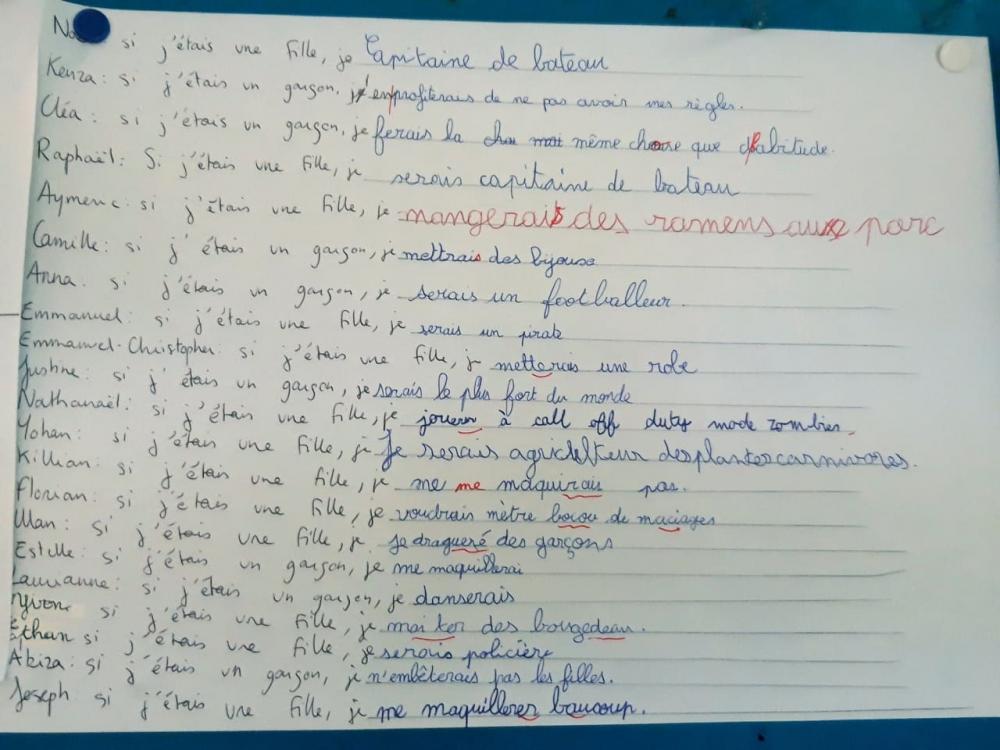 No si j'étais une fille, je Capitaine de bateau
Kenza: si j'étais un garçon, j'en profiterais de ne pas avoir mes règles.
Cléa: si j'étais un garçon, je ferais la même chose que d'habitude.
Raphaël: Si j'étais une fille, je serais capitaine de bateau
Aymeric: si j'étais une fille, je mangerais des ramens au parc
Camille: si j'étais un garçon, je mettrais des bijoux
Anna: si j'étais un garçon, je serais un footballeur.
Emmanuel: si j'étais une fille, je serais un pirate
Emmanuel-Christopher: si j'étais une fille, je metterais une robe
Justine: si j'étais un garçon, je serais le plus fort du monde
Nathanaël: si j'étais une fille, je jouerer à call off duty mode zombies.
Yohan: si j'étais une fille, je Je serais agriculteur des plantes carnivores.
Killian: si j'étais une fille, je me me maquirais pas.
Florian: si j'étais une fille, je voudrais mètre bocou de maciages
Ulan: si j'étais une fille, je je dragueré des garçons
Estelle: si j'étais un garçon, je me maquillerai
Laurianne: si j'étais un garçon, je danserais
Yvon si j'étais une fille, je mai ter des bougedeau.
Ethan si j'étais une fille, je serais policière
Akiza: si j'étais un garçon, je n'embêterais pas les filles.
Joseph si j'étais une fille, je me maquillerer baucoup.